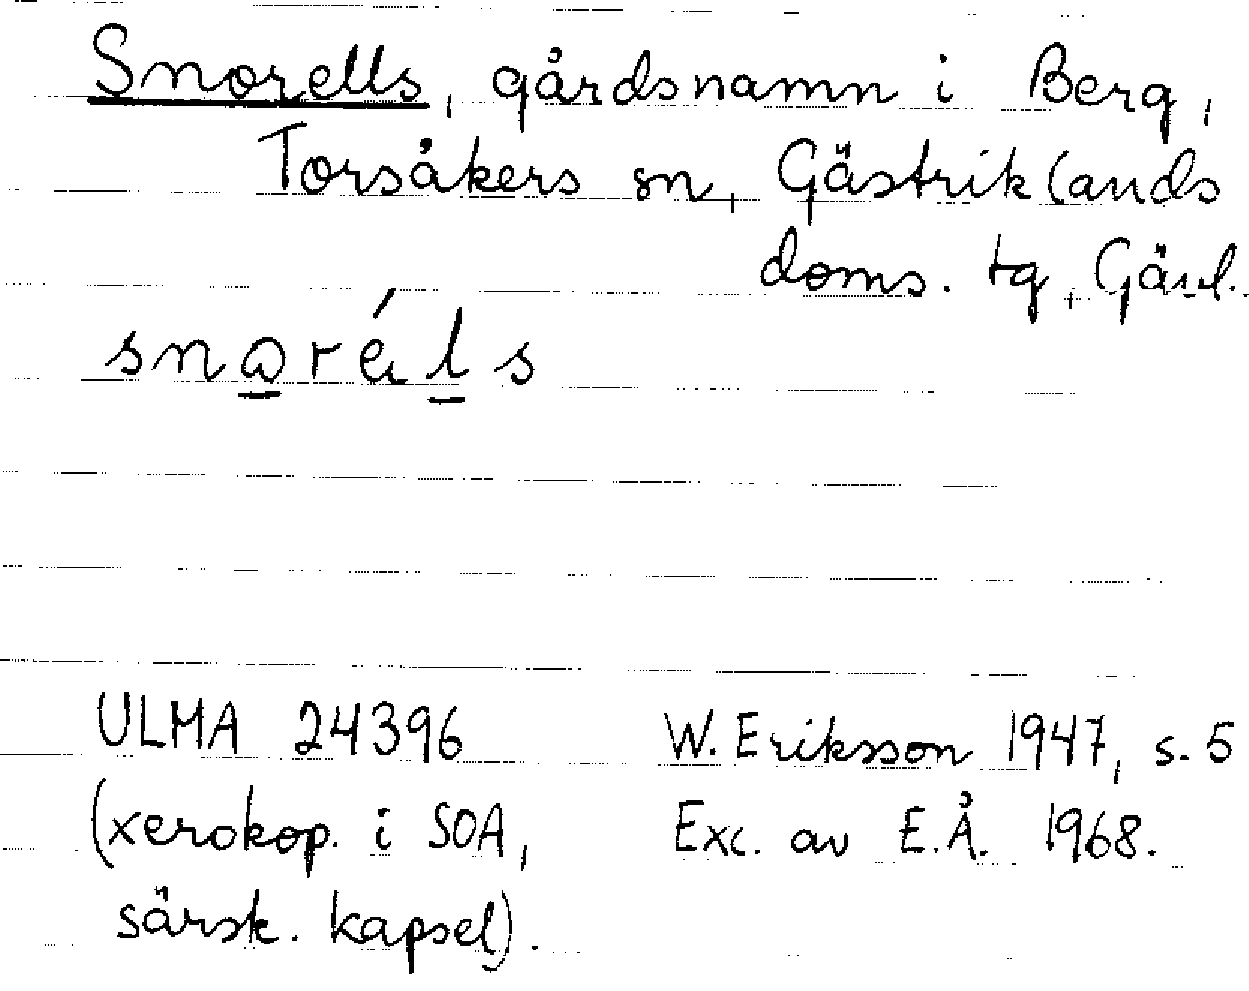 Snorells, gårdsnamn i Berg,
Torsåkers sn, Gästriklands
doms. tg, Gävl.
ULMA 24396 W. Eriksson 1947, s. 5
(xerokop. i SOA, Exc. av E.Å. 1968.
särsk. kapsel).